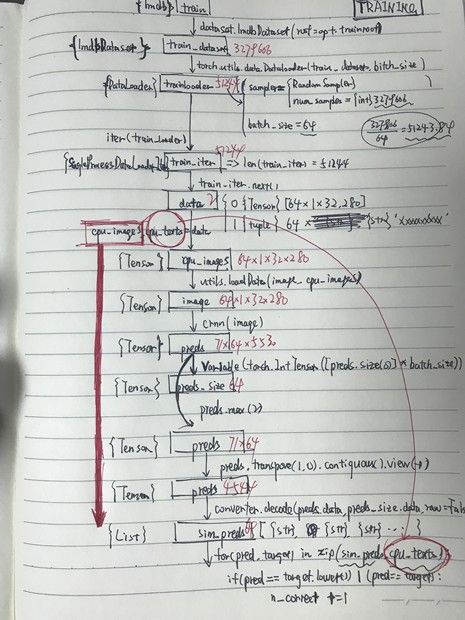 {lmdb} train
TRAINING
dataset.lmdbDataset(root=opt.trainroot)
{lmdbDataset} train_dataset 3279606
torch.utils.data.DataLoader(train_dataset, batch_size)
{DataLoader} trainloader 51244 sampler = {RandomSampler}
num_samples = {int} 3279606
batch_size = 64
3279606
64
= 51243.84
iter(train_loader)
train_iter 51244 => len(train_iter) = 51244
train_iter.next()
data 2 { 0 {Tensor} [64×1×32×280]
1 {tuple} 64 × {str} 'xxxxxxxxx'
cpu_images, cpu_texts = data
{Tensor} cpu_images 64×1×32×280
utils.loadData(image, cpu_images)
{Tensor} image 64×1×32×280
crnn(image)
{Tensor} preds 71×64×5530
Variable(torch.IntTensor([preds.size(0)] * batch_size))
{Tensor} preds_size 64
preds.max(2)
{Tensor} preds 71×64
preds.transpose(1,0).contiguous().view(-1)
{Tensor} preds 4544
converter.decode(preds.data, preds_size.data, raw=False
{List} sim_preds 64 [{str} {str} {str} ...]
for(pred, target) in zip(sim_preds, cpu_texts):
if(pred == target.lower()) | (pred == target):
n_correct += 1